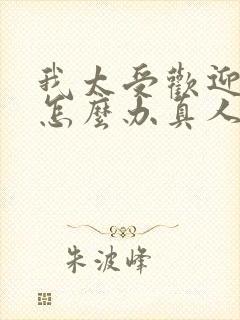 我太受歡迎
怎麼办真人
朱波峰